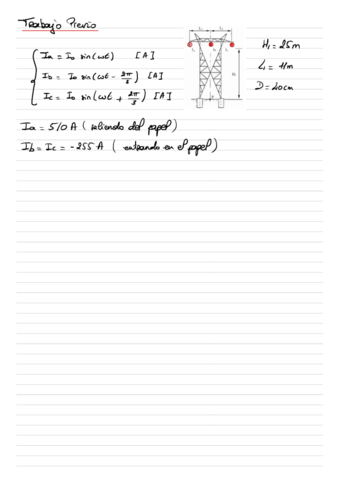 Trabajo Previo
Ia = Io sin(ωt) [A]
Ib = Io sin(ωt - 2π/3) [A]
Ic = Io sin(ωt + 2π/3) [A]
H₁ = 25m
L₁ = 11m
D = 20cm
Ia = 510 A (saliendo del papel)
Ib = Ic = -255 A (entrando en el papel)